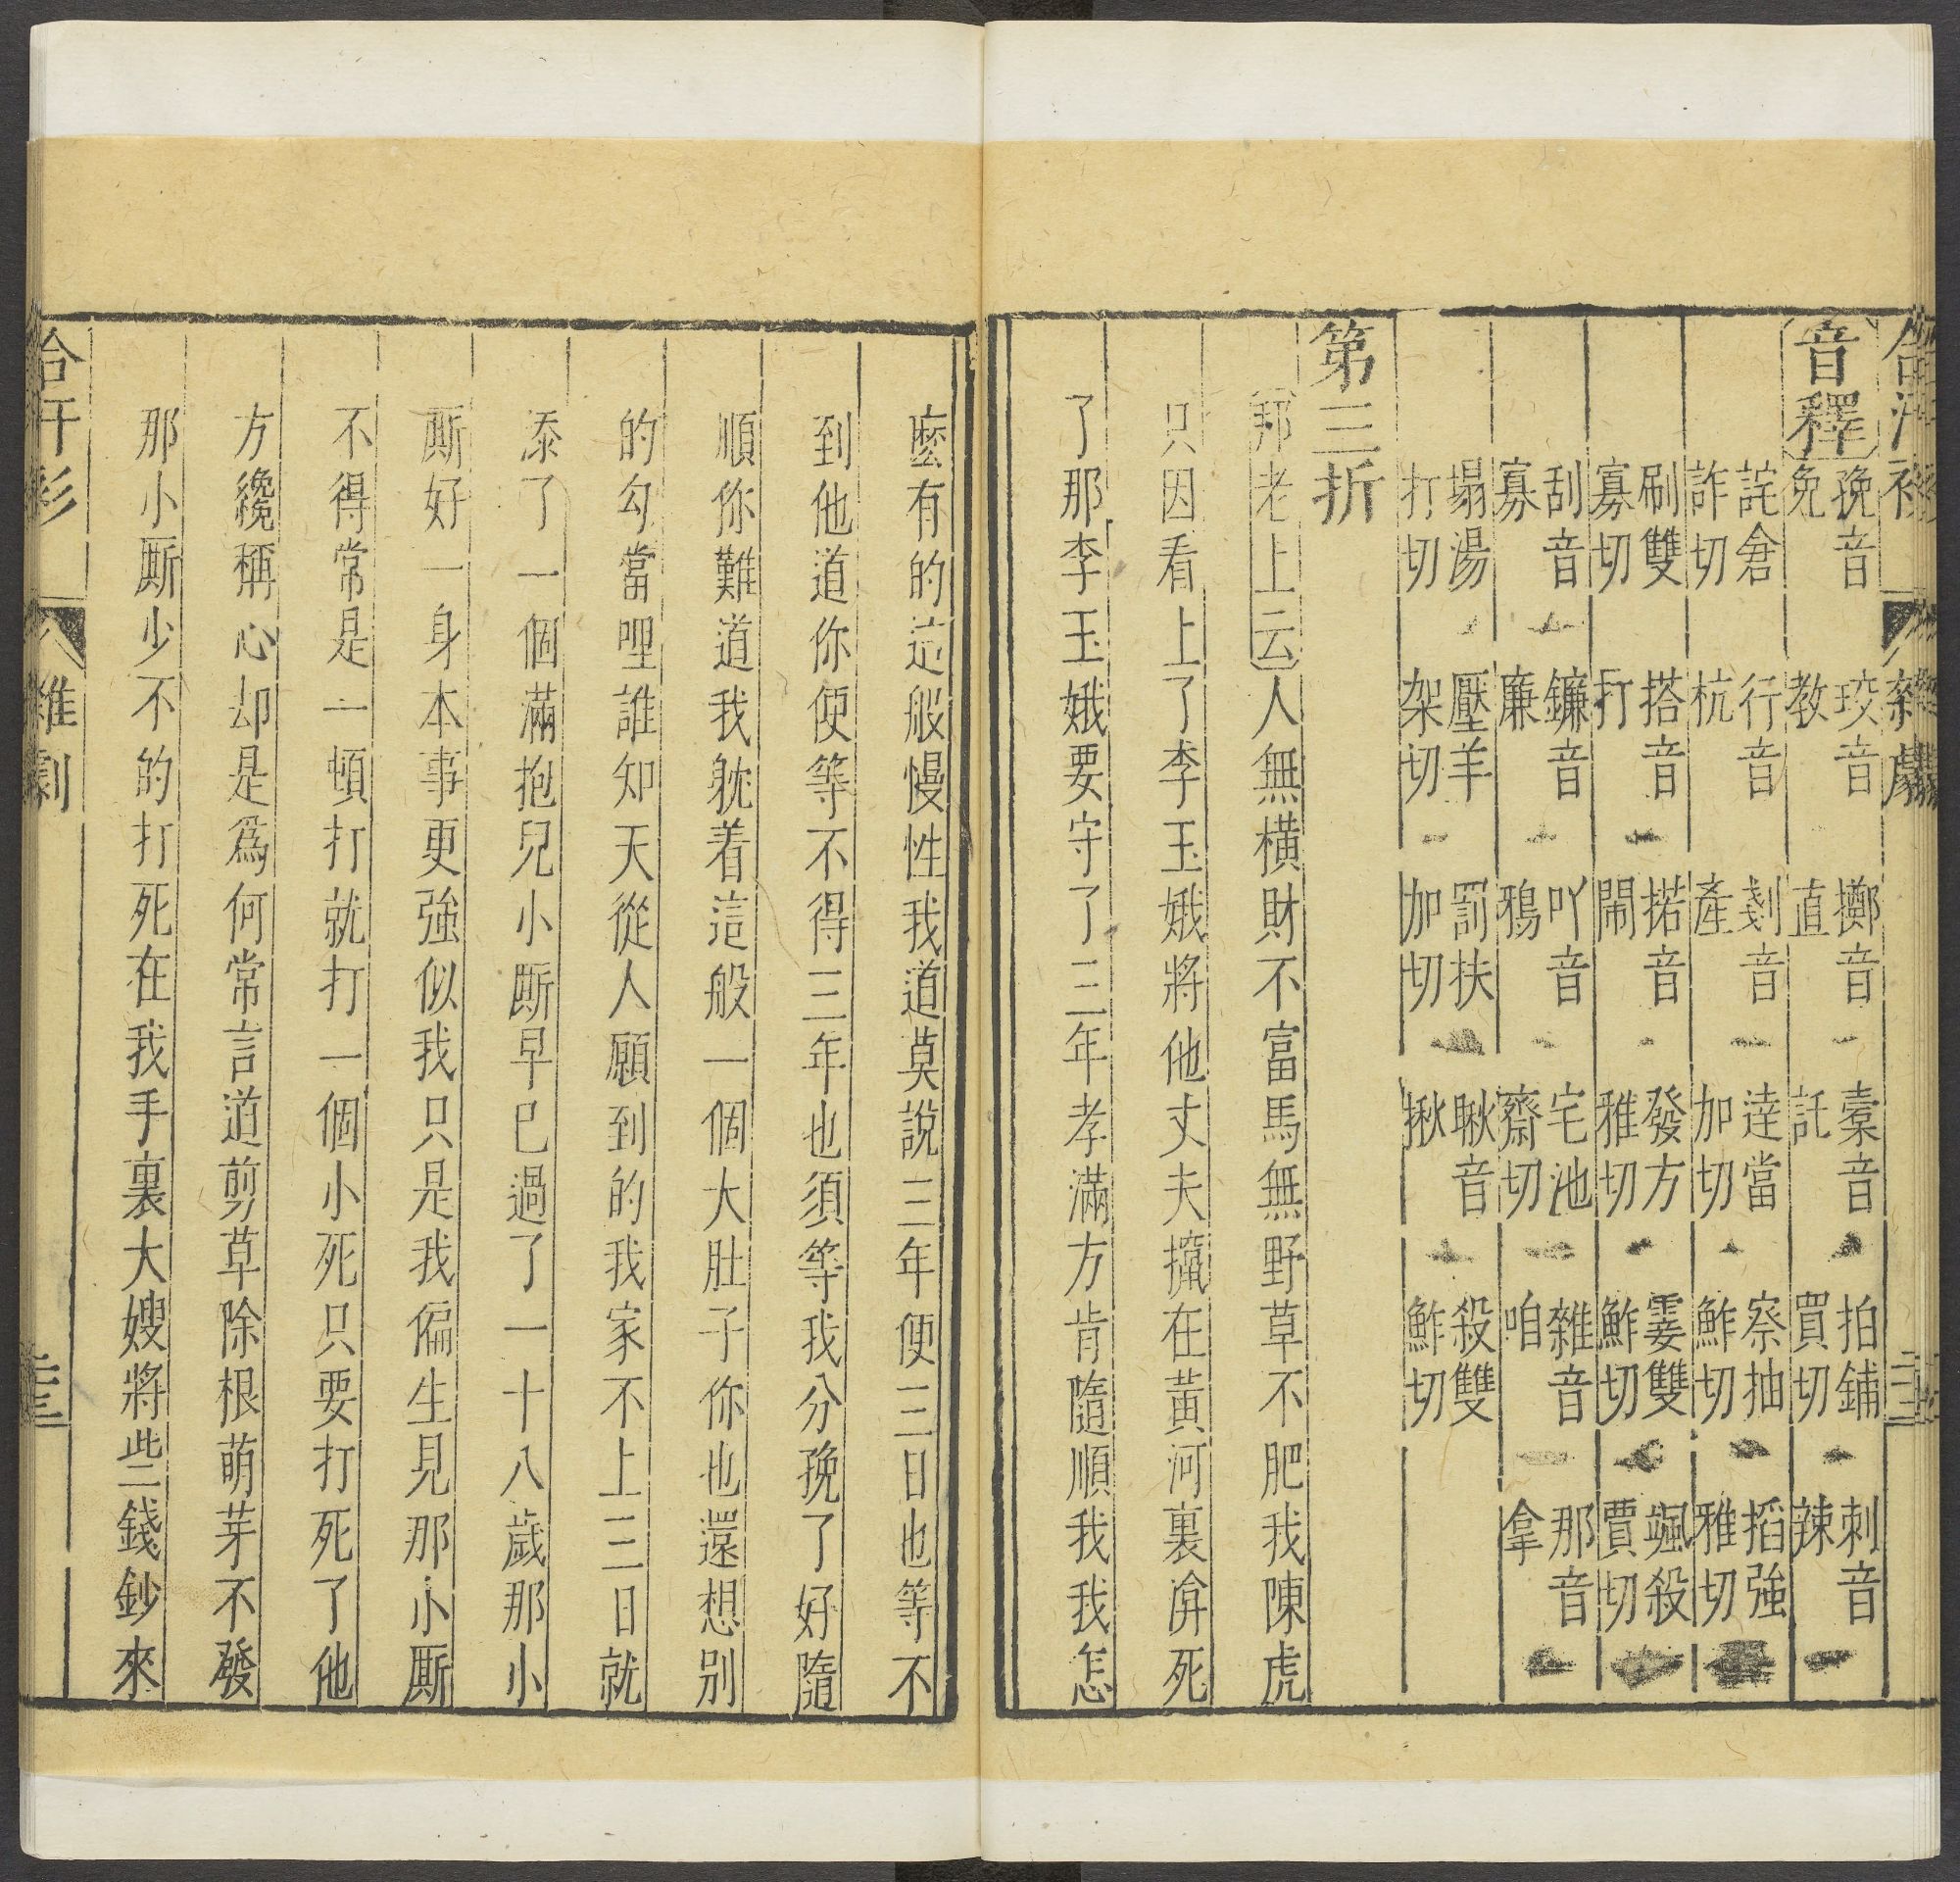 合汗衫 雜劇
音釋 挽音免 珓音教 擲音直 槖音託 拍鋪買切 刺音辣
詫倉詐切 行音杭 剗音產 達當加切 察抽鮓切 搯強雅切
刷雙寡切 搭音打 掿音鬧 發方雅切 霎雙鮓切 颯殺賈切
刮音寡 鐮音廉 吖音鴉 宅池齋切 雜音咱 那音拿
塌湯打切 壓羊架切 罰扶加切 瞅音揪 殺雙鮓切
第三折
邦老上云人無橫財不富馬無野草不肥我陳虎
只因看上了李玉娥將他丈夫攛在黃河裏渰死
了那李玉娥要守了三年孝滿方肯隨順我我怎
麼有的這般慢性我道莫說三年便三日也等不
到他道你便等不得三年也須等我分挽了好隨
順你難道我躭着這般一個大肚子你也還想别
的勾當哩誰知天從人願到的我家不上三日就
添了一個滿抱兒小厮早已過了一十八歲那小
厮好一身本事更強似我只是我偏生見那小厮
不得常是一頓打就打一個小死只要打死了他
方纔稱心却是爲何常言道剪草除根萌芽不發
那小厮少不的打死在我手裏大嫂將些錢鈔來
合汗衫 雜劇